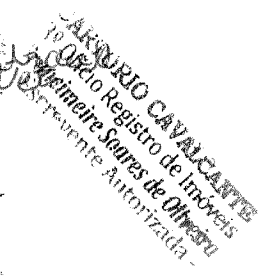 CARTÓRIO CAVALCANTE
1º Ofício Registro de Imóveis
Lucimeire Soares de Oliveira
Escrevente Autorizada -